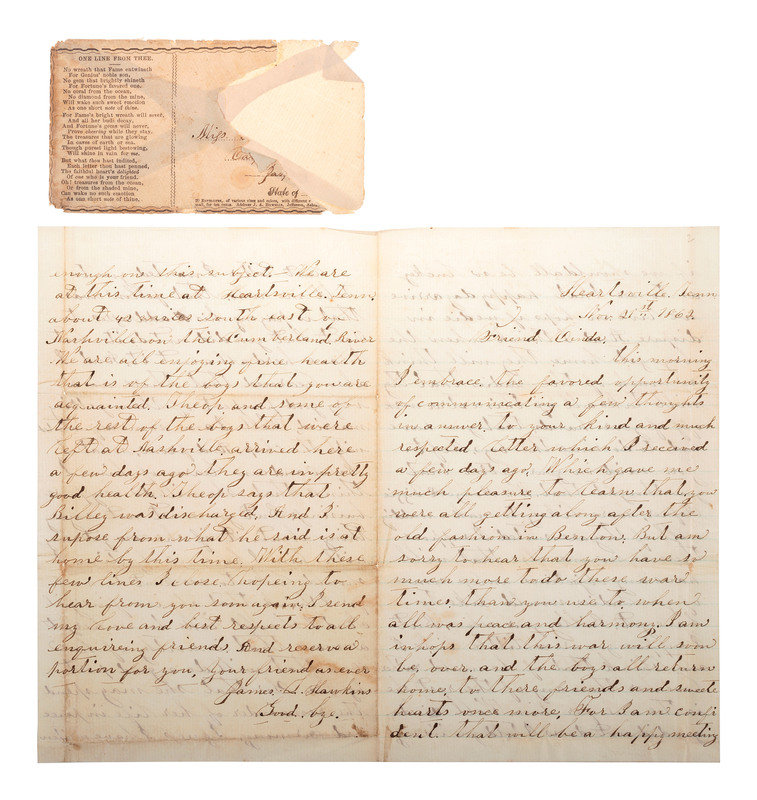 ONE LINE FROM THEE.
No wreath that Fame entwineth
For Genius' noble son,
No gem that brightly shineth
For Fortune's favored one,
No coral from the ocean,
No diamond from the mine,
Will wake such sweet emotion
As one short note of thine.
For Fame's bright wreath will sever,
And all her buds decay,
And Fortune's gems will never,
Prove cheering while they stay.
The treasures that are glowing
In caves of earth or sea,
Though purest light bestowing,
Will shine in vain for me.
But what thou hast indited,
Each letter thou hast penned,
The faithful heart's delighted
Of one who is your friend.
Oh! treasures from the ocean,
Or from the shaded mine,
Can wake no such emotion
As one short note of thine.
Miss
State of
Envelopes, of various sizes and colors, with different
mail, for ten cents. Address J. A. Jefferson,
enough on this subject. We are
at this time at Heartsville, Tenn.
about 42 miles south east of
Nashville on the Cumberland River
We are all enjoying fine health
that is of the boys that you are
acquainted. Theop and some of
the rest of the boys that were
left at Nashville arrived here
a few days ago They are in pretty
good health. Theop says that
Billey was discharged. And I
supose from what he said is at
home by this time. With these
few lines I close hopeing to
hear from you soon again. I send
my love and best respects to all
enquireing friends And reserve a
portion for you, Your friend as ever
James. L. Hawkins
Good. bye.
2
Heartsville, Tenn
Nov. 21st 1862
Friend Cinda,
this morning
I embrace. The favored opportunity
of communicating a few thoughts
in answer, to your kind and much
respected. Letter which I received
a few days ago. Which gave me
much pleasure to learn that, you
were all getting along after the
old fashion in Benton. But am
sorry to hear that you have so
much more to do these war
times, than you use to when
all was peace and harmony. I am
in hops that this war will soon
be, over. and the boys all return
home, to there friends and sweete
hearts once more, For I am confi
dent. that will be a happy meeting